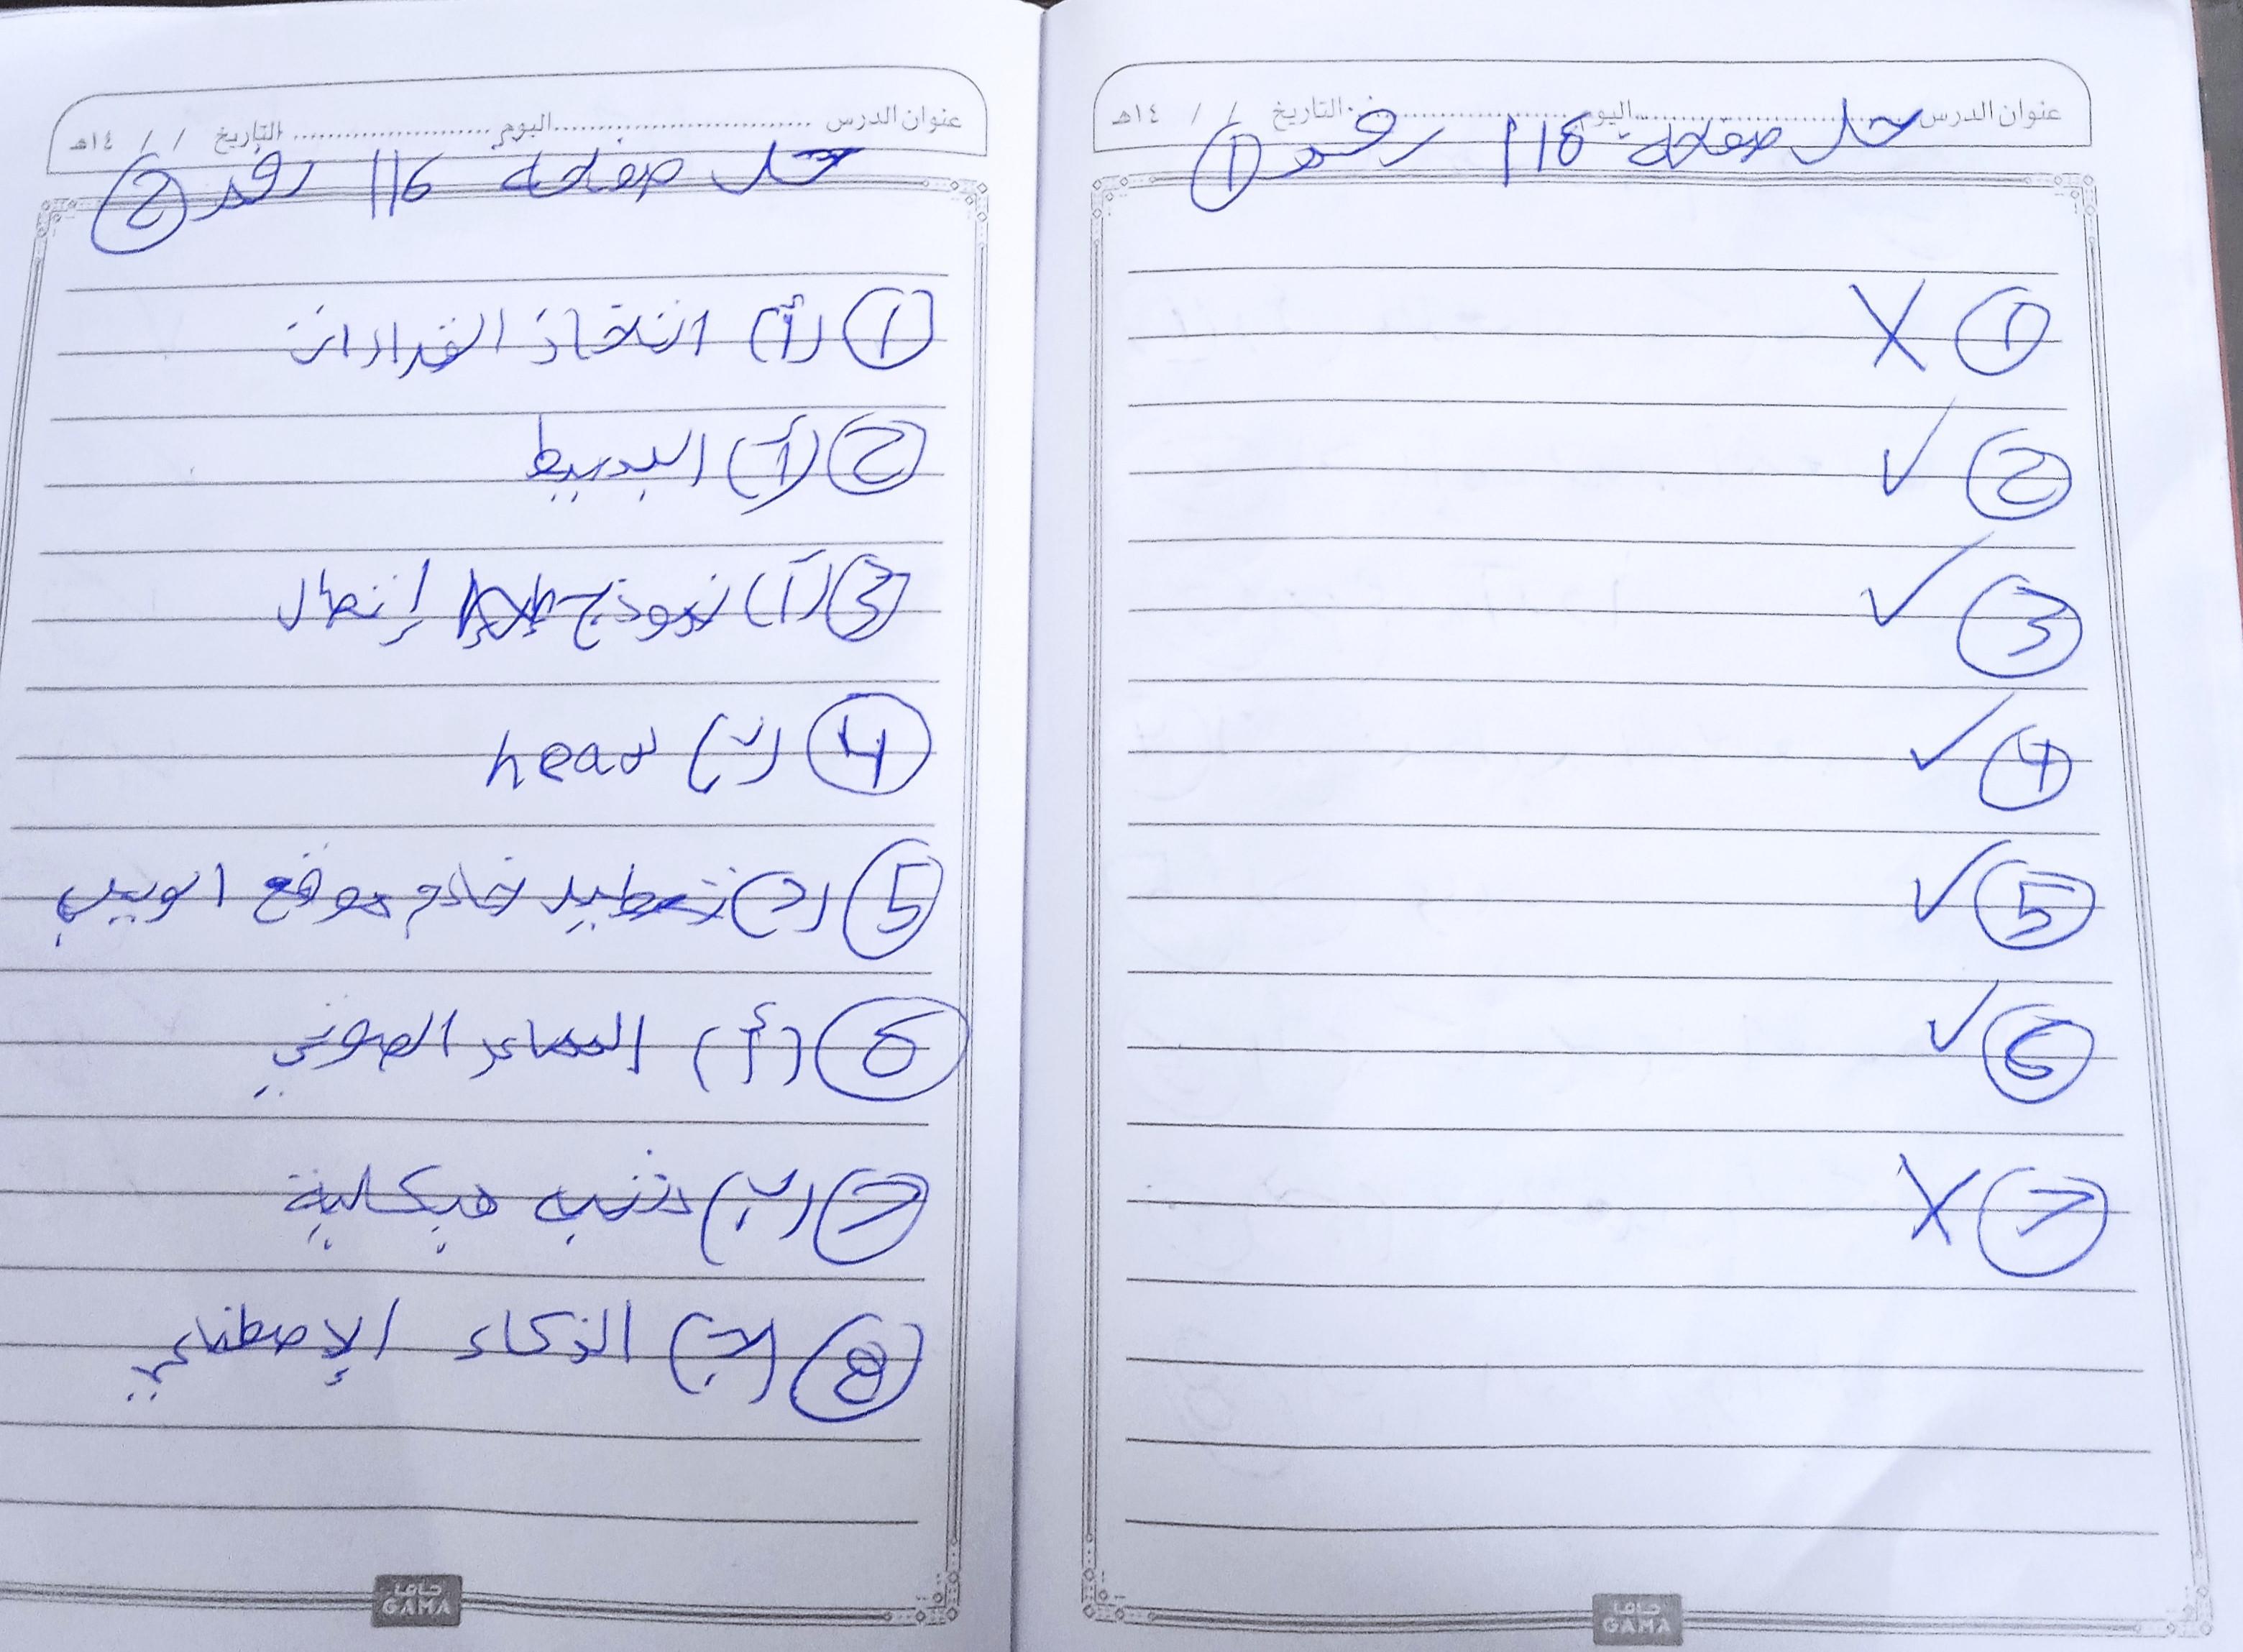 عنوان الدرس ........ اليوم ........ التاريخ / / ١٤هـ
حل صفحة 116 رقم (1)
(1) X
(2) ✓
(3) ✓
(4) ✓
(5) ✓
(6) ✓
(7) X
جاما
GAMA
عنوان الدرس ........ اليوم ........ التاريخ / / ١٤هـ
حل صفحة 116 رقم (2)
(1) (أ) اتخاذ القرارات
(2) (أ) البسيط
(3) (أ) نموذج إتصال
(4) (ب) head
(5) خادم موقع الويب
(6) (أ) المساعد الصوتي
(7) (ب) هيكلية
(8) (ج) الذكاء الإصطناعي
جاما
GAMA